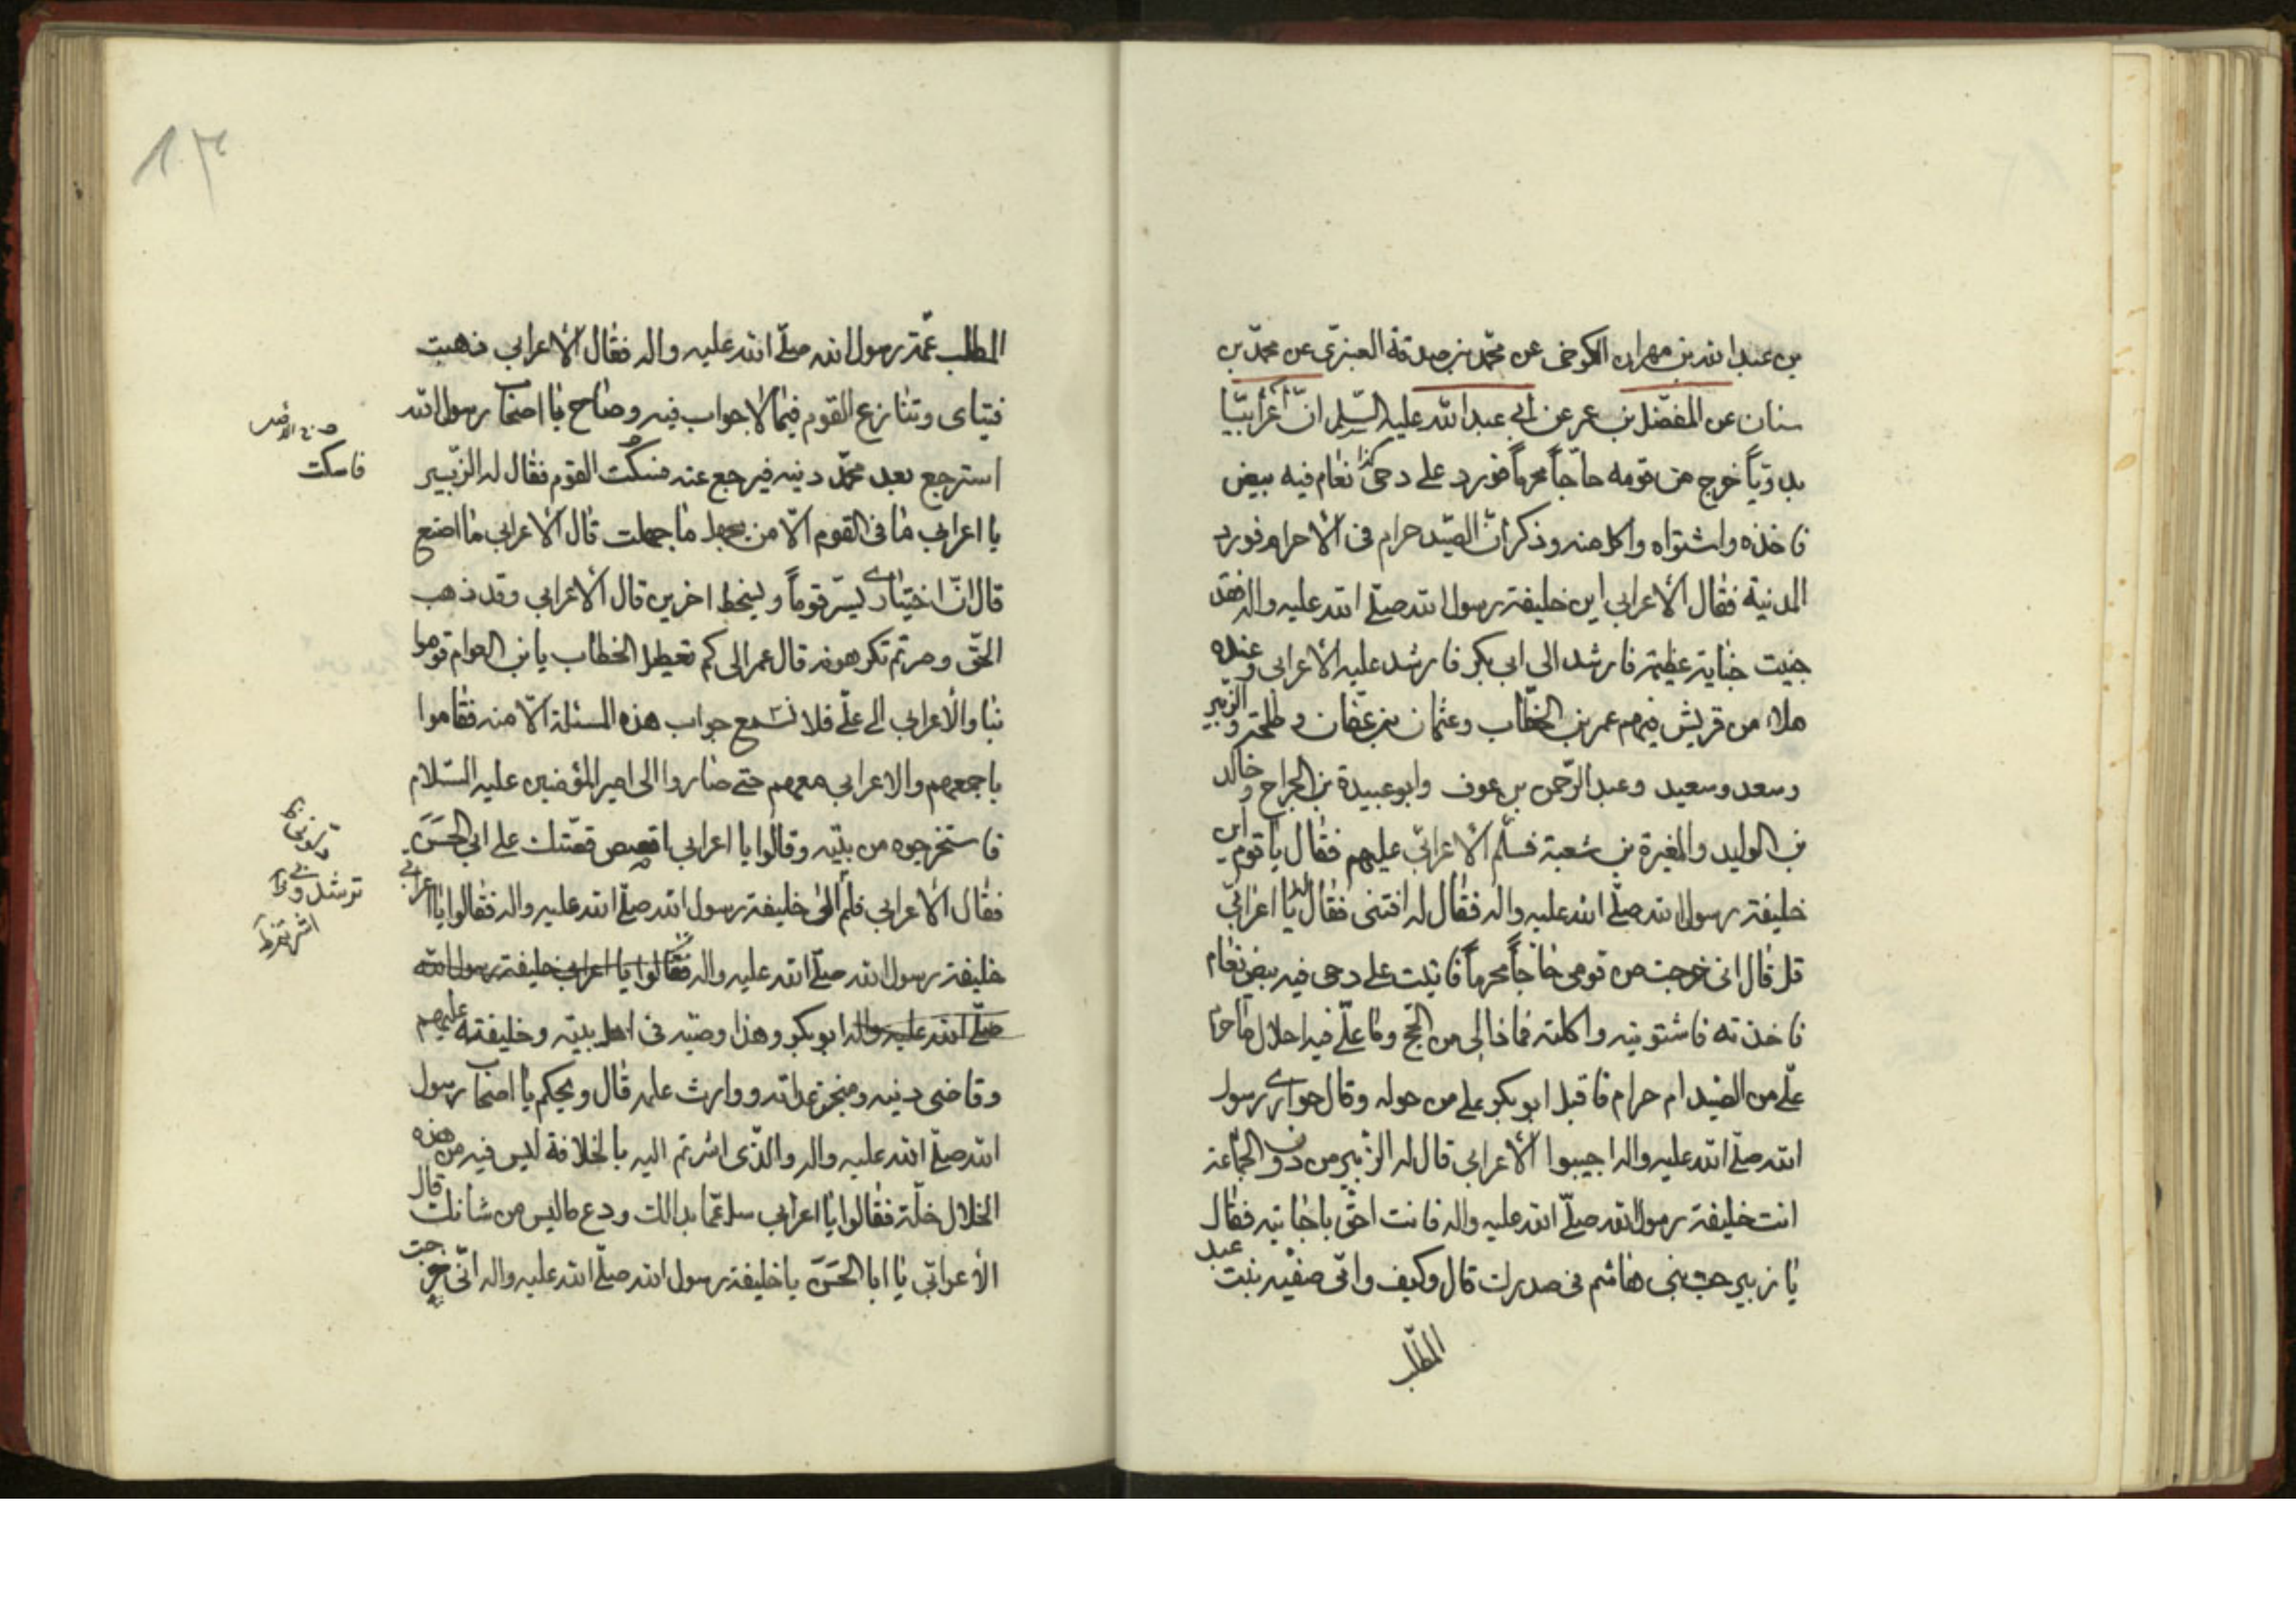 بن عبد الله بن مهران الكوخى عن محمّد بن صدقة العنزى عن محمّد بن
سنان عن المفضّل بن عمر عن أبي عبد الله عليه السّلم انّ أعرابيّا
بدوّياً خرج من قومه حاجّاً محرماً فورد على دحى نعام فيه بيض
فاخذه واشتواه واكل منه وذكر انّ الصّيد حرام فى الأحرام فورد
المدنية فقال الأعرابي اين خليفة رسول الله صلّى الله عليه واله فقد
جنيت جناية عظيمة فارشد الى ابى بكر فارشد عليه الأعرابى وعنده
ملاء من قريش فيهم عمر بن الخطّاب وعثمان بن عفّان وطلحة والزّبير
وسعد وسعيد وعبد الرّحمن بن عوف وابو عبيدة بن الجراح وخالد
بن الوليد والمغيرة بن شعبة فسلّم الأعرابيّ عليهم فقال يا قوم اين
خليفة رسول الله صلّى الله عليه واله فقال له افتنى فقال يا اعرابيّ
قل قال انى خرجت من قومى حاجاً محرماً فاتيت على دحى فيه بيض نعام
فاخذته فاشتويته واكلته فماذا لى من الحّج وما علىّ فيه احلال ما حرم
علىّ من الصّيد ام حرام فاقبل ابو بكر على من حوله وقال حوارى رسول
الله صلّى الله عليه واله اجيبوا الأعرابى قال له الزّبير من دون الجماعة
انت خليفة رسول الله صلّى الله عليه واله فانت احقّ باجابته فقال
يا زبير حبّ بنى هاشم فى صدرك قال وكيف وامّى صفيّه بنت عبد
المطّلب
١٣
المطلب عمّة رسول الله صلّى الله عليه واله فقال الأعرابي ذهبت
فتياى وتنازع القوم فيما لا جواب فيه وصاح يا اصحاب رسول الله
استرجع بعد محمّد دينه فيرجع عنه فسكت القوم فقال له الزّبير
فاسكت
يا اعرابي ما فى القوم الّا من يجهل ما جهلت قال الأعرابي ما اصنع
قال انّ اختيارى يسّر قوماً ويسخط اخرين قال الأعرابي وقد ذهب
الحّق وصرتم تكرهونه قال عمر الى كم تعطيل الخطاب يا بن العوام قوموا
بنا والأعرابي الى علىّ فلا نسمع جواب هذه المسئلة الّا منه فقاموا
باجمعهم والاعرابي معهم حتى صاروا الى امير المؤمنين عليه السّلام
فاستخرجوه من بيّته وقالوا يا اعرابي اقصص قصّتك على ابى الحسن
فقال الأعرابي فلم الى خليفة رسول الله صلّى الله عليه واله فقالوا يا اعرابي
خليفة رسول الله صلّى الله عليه واله فقالوا يا اعرابي خليفة رسول الله
صلّى الله عليه واله ابو بكر وهذا وصيّه فى اهل بيّته وخليفته عليهم
وقاضى دينه ومنجز عداته ووارث علمه قال ويحكم يا اصحاب رسول
الله صلّى الله عليه واله والّذى اشرتم اليه بالخلافة ليس فيه من هذه
الخلال خلّة فقالوا يا اعرابي سل عمّا بدالك ودع ما ليس من شانك قال
الأعرابّي يا ابا الحسن يا خليفة رسول الله صلّى الله عليه واله انّى خرجت